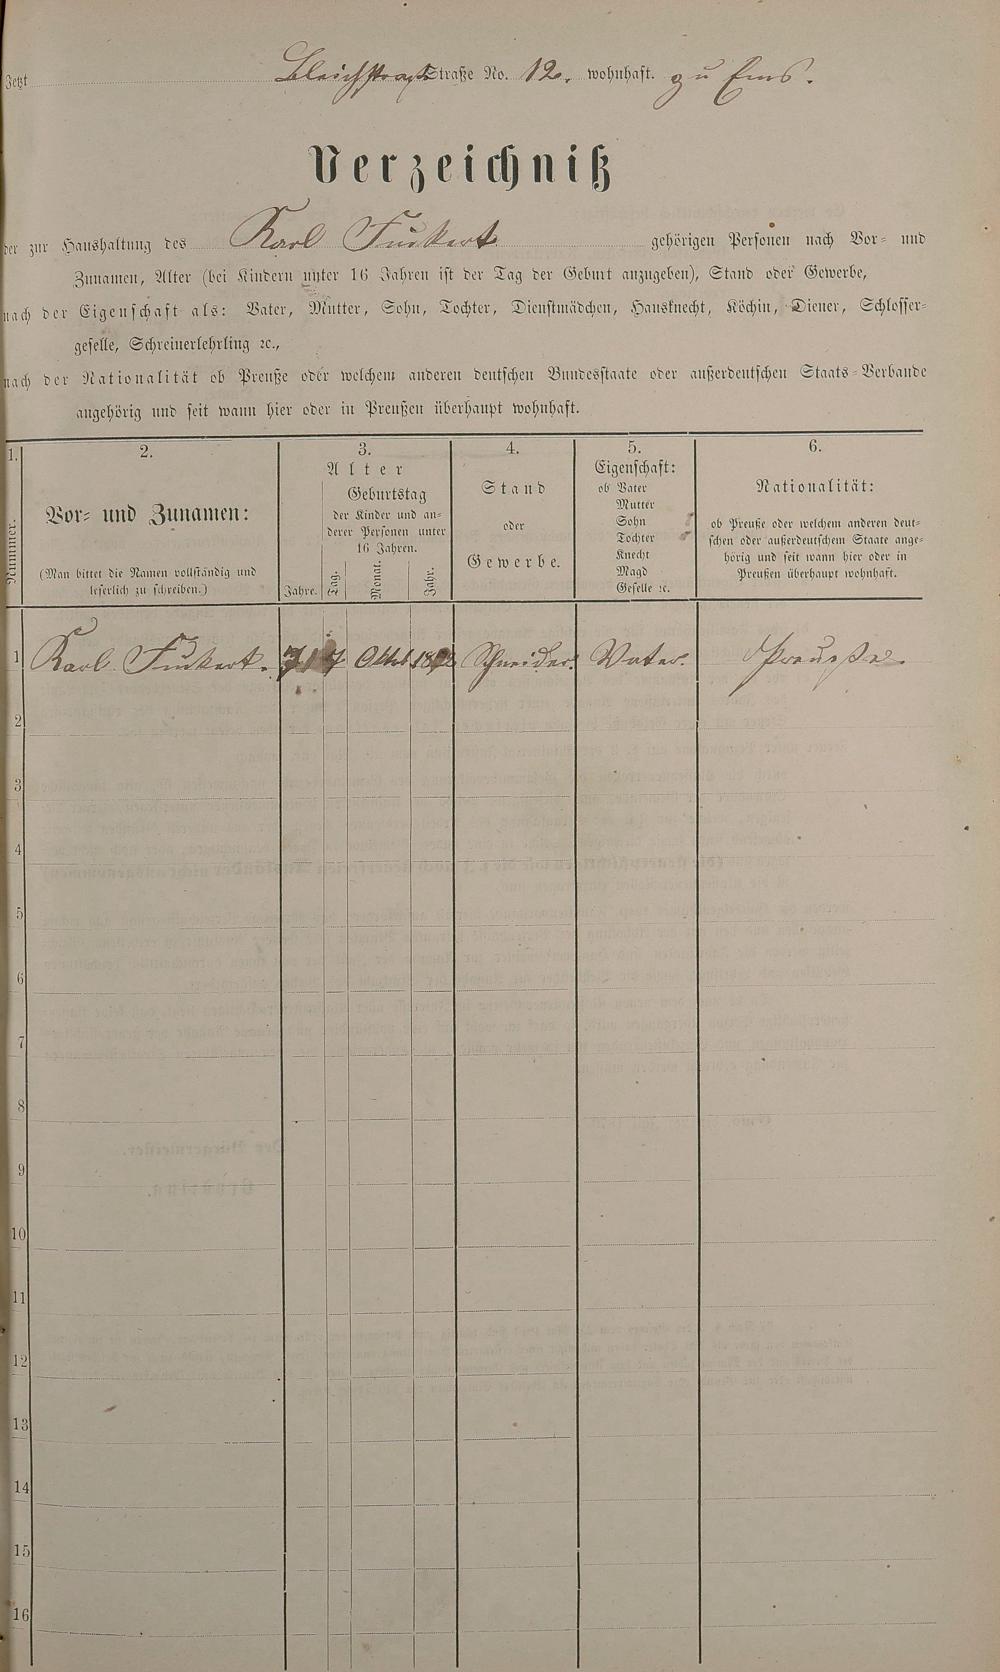 Jetzt Bleichstraße Straße No. 12. wohnhaft. zu Ems.
Verzeichniß
der zur Haushaltung des Karl Fuckert gehörigen Personen nach Vor- und
Zunamen, Alter (bei Kindern unter 16 Jahren ist der Tag der Geburt anzugeben), Stand oder Gewerbe,
nach der Eigenschaft als: Vater, Mutter, Sohn, Tochter, Dienstmädchen, Hausknecht, Köchin, Diener, Schlosser-
geselle, Schreinerlehrling ꝛc.,
nach der Nationalität ob Preuße oder welchem anderen deutschen Bundesstaate oder außerdeutschen Staats-Verbande
angehörig und seit wann hier oder in Preußen überhaupt wohnhaft.
1.
Nummer.
2.
Vor- und Zunamen:
(Man bittet die Namen vollständig und
leserlich zu schreiben.)
3.
Alter
Geburtstag
der Kinder und an-
derer Personen unter
16 Jahren.
Jahre. Tag. Monat. Jahr.
4.
Stand
oder
Gewerbe.
5.
Eigenschaft:
ob Vater
Mutter
Sohn
Tochter
Knecht
Magd
Geselle ꝛc.
6.
Nationalität:
ob Preuße oder welchem anderen deut-
schen oder außerdeutschem Staate ange-
hörig und seit wann hier oder in
Preußen überhaupt wohnhaft.
1 Karl Fuckert. 71 7 Oktob. Schneider. Vater. Preuße.
2
3
4
5
6
7
8
9
10
11
12
13
14
15
16